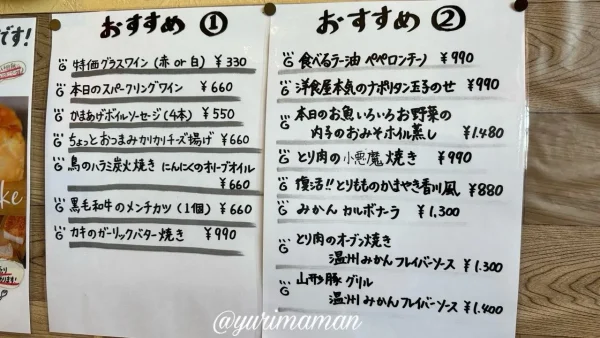 おすすめ ①
特価グラスワイン(赤or白) ¥330
本日のスパークリングワイン ¥660
かまあげボイルソーセージ(4本) ¥550
ちょっとおつまみカリカリチーズ揚げ ¥660
鳥のハラミ炭火焼き にんにくのオリーブオイル
¥660
黒毛和牛のメンチカツ(1個) ¥660
カキのガーリックバター焼き ¥990
おすすめ ②
食べるラー油 ペペロンチーノ ¥990
洋食屋本気のナポリタン玉子のせ ¥990
本日のお魚いろいろお野菜の
内子のおみそホイル蒸し ¥1.480
とり肉の小悪魔焼き ¥990
復活!!とりもものかまやき香川風 ¥880
みかん カルボナーラ ¥1.300
とり肉のオーブン焼き
温州みかんフレイバーソース ¥1.300
山形豚グリル
温州みかんフレイバーソース ¥1.400
です!
ke
@yurimaman